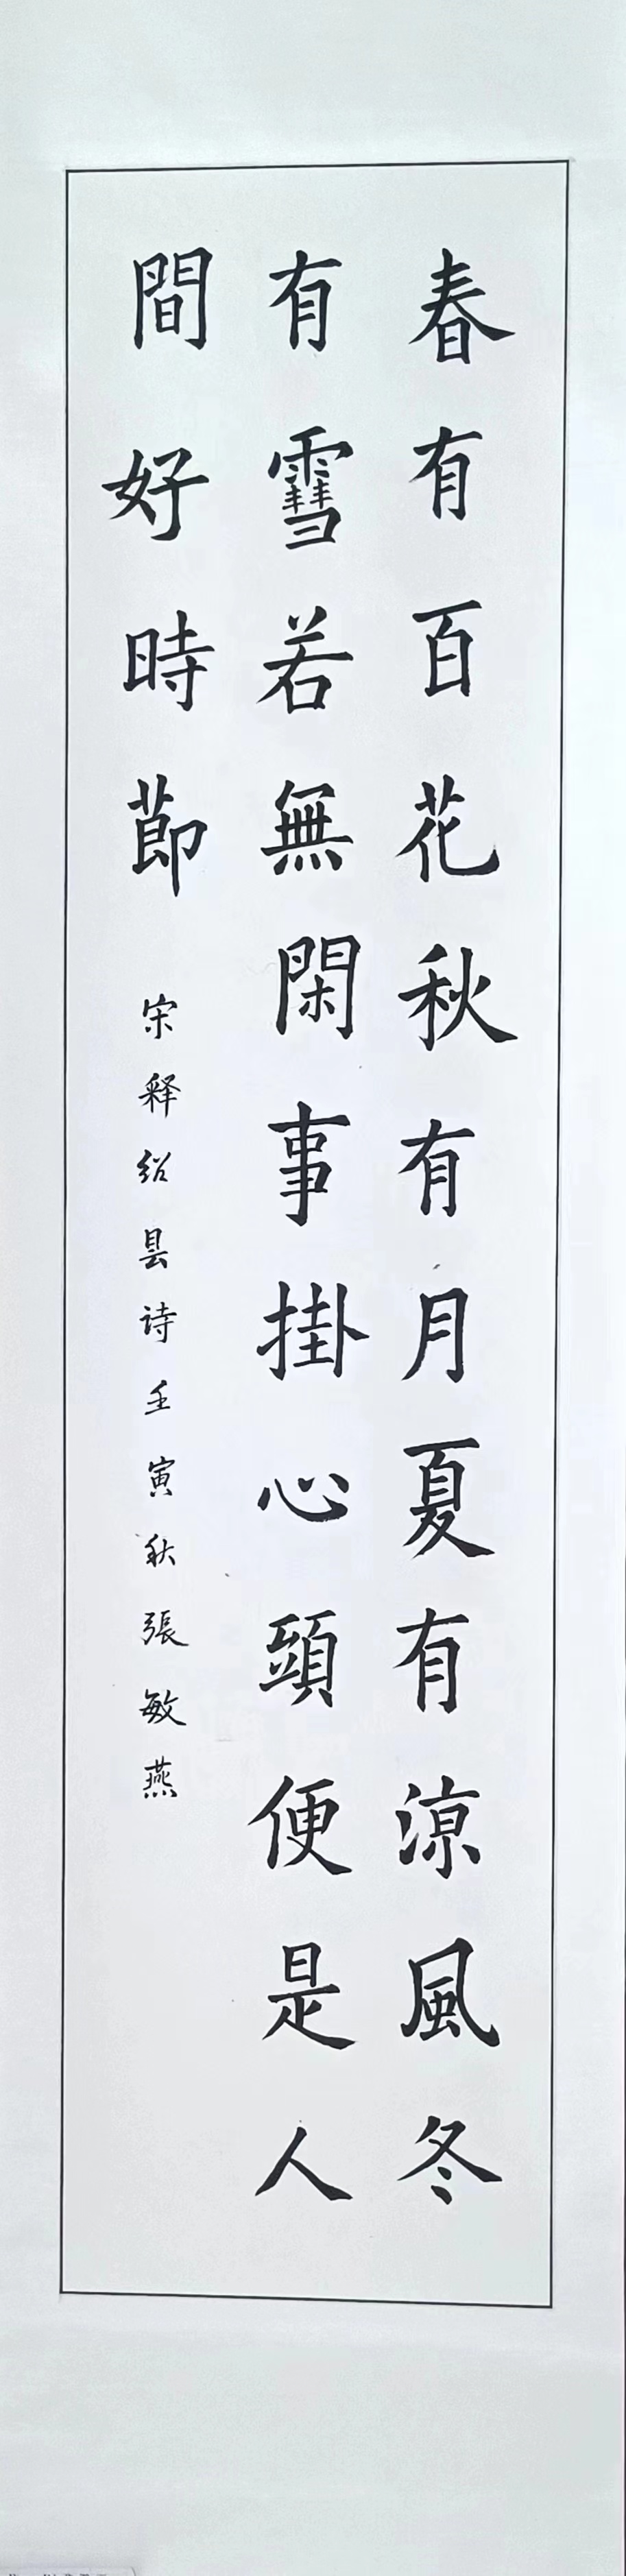 春有百花秋有月夏有涼風冬
有雪若無閑事掛心頭便是人
間好時節
宋释绍昙诗壬寅秋張敏燕